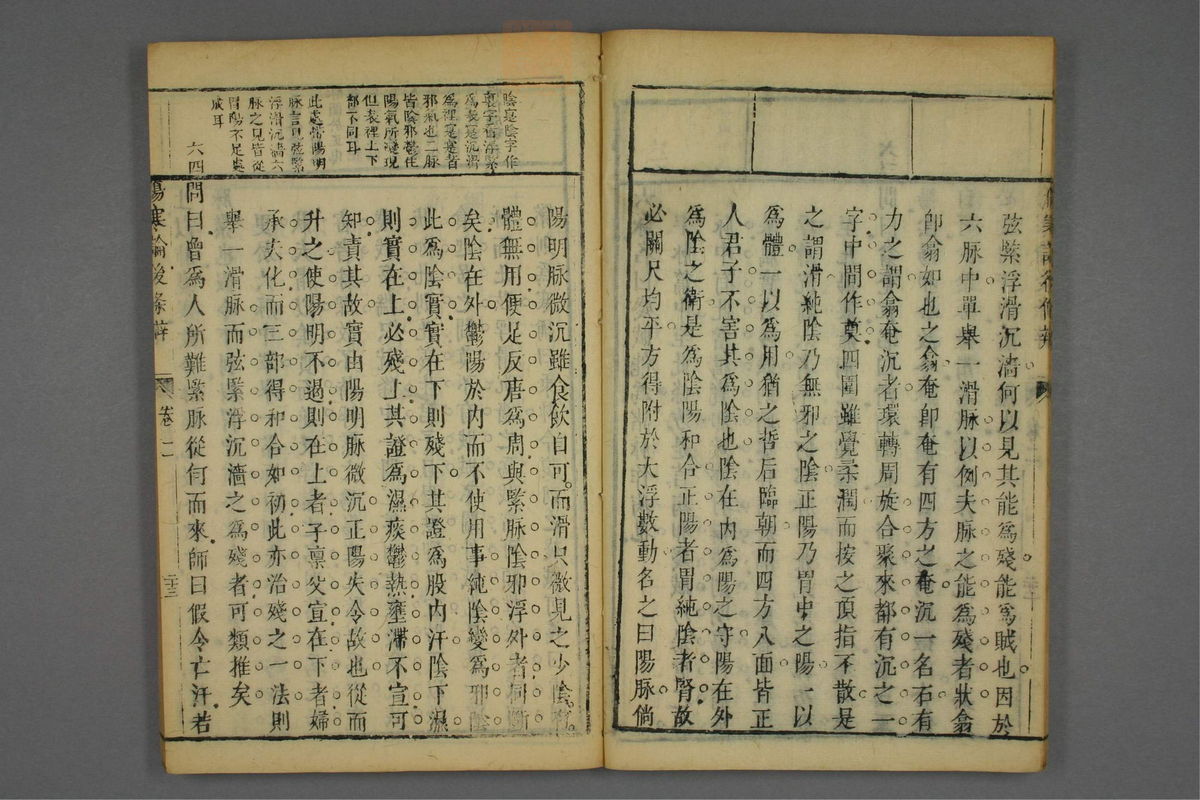 弦緊浮滑沉濇何以見其能為殘能為賊也因於
六脉中單舉一滑脉以例夫脉之能為殘者狀翕
卽翕如也之翕奄卽奄有四方之奄沉一名石有
力之謂翕奄沉者環轉周旋合聚來都有沉之一
字中間作奠四圍雖覺柔潤而按之頂指不散是
之謂滑純陰乃無邪之陰正陽乃胃中之陽一以
為體一以為用猶之哲后臨朝而四方八面皆正
人君子不害其為陰也陰在內為陽之守陽在外
為陰之衛是為陰陽和合正陽者胃純陰者腎故
必關尺均平方得附於大浮數動名之曰陽脉倘
陰寔陰字作
裏字看浮緊
為表寔沉滑
為裡寔寔者
邪氣也二脉
皆陰邪鬱住
陽氣所變現
但表裡上下
部一不同耳
此處帶陽明
脉言見弦緊
浮滑沉濇六
脉之見皆從
胃陽不足處
成耳
陽明脉微沉雖食飲自可而滑只微見之少陰
體無用便是反唐為周與緊脉陰邪浮外者何斷
矣陰在外鬱陽於內而不使用事純陰變為邪陰
此為陰實實在下則殘下其證為股內汗陰下濕
則實在上必殘上其證為濕痰鬱熱壅滯不宣可
知責其故實由陽明脉微沉正陽失令故也從而
升之使陽明不遏則在上者子禀父宜在下者婦
承夫化而三部得和合如初此亦治殘之一法則
舉一滑脉而弦緊浮沉濇之為殘者可類推矣
六四問曰曾為人所難緊脉從何而來師曰假令亡汗若
傷寒論後條辨
卷二
二十三